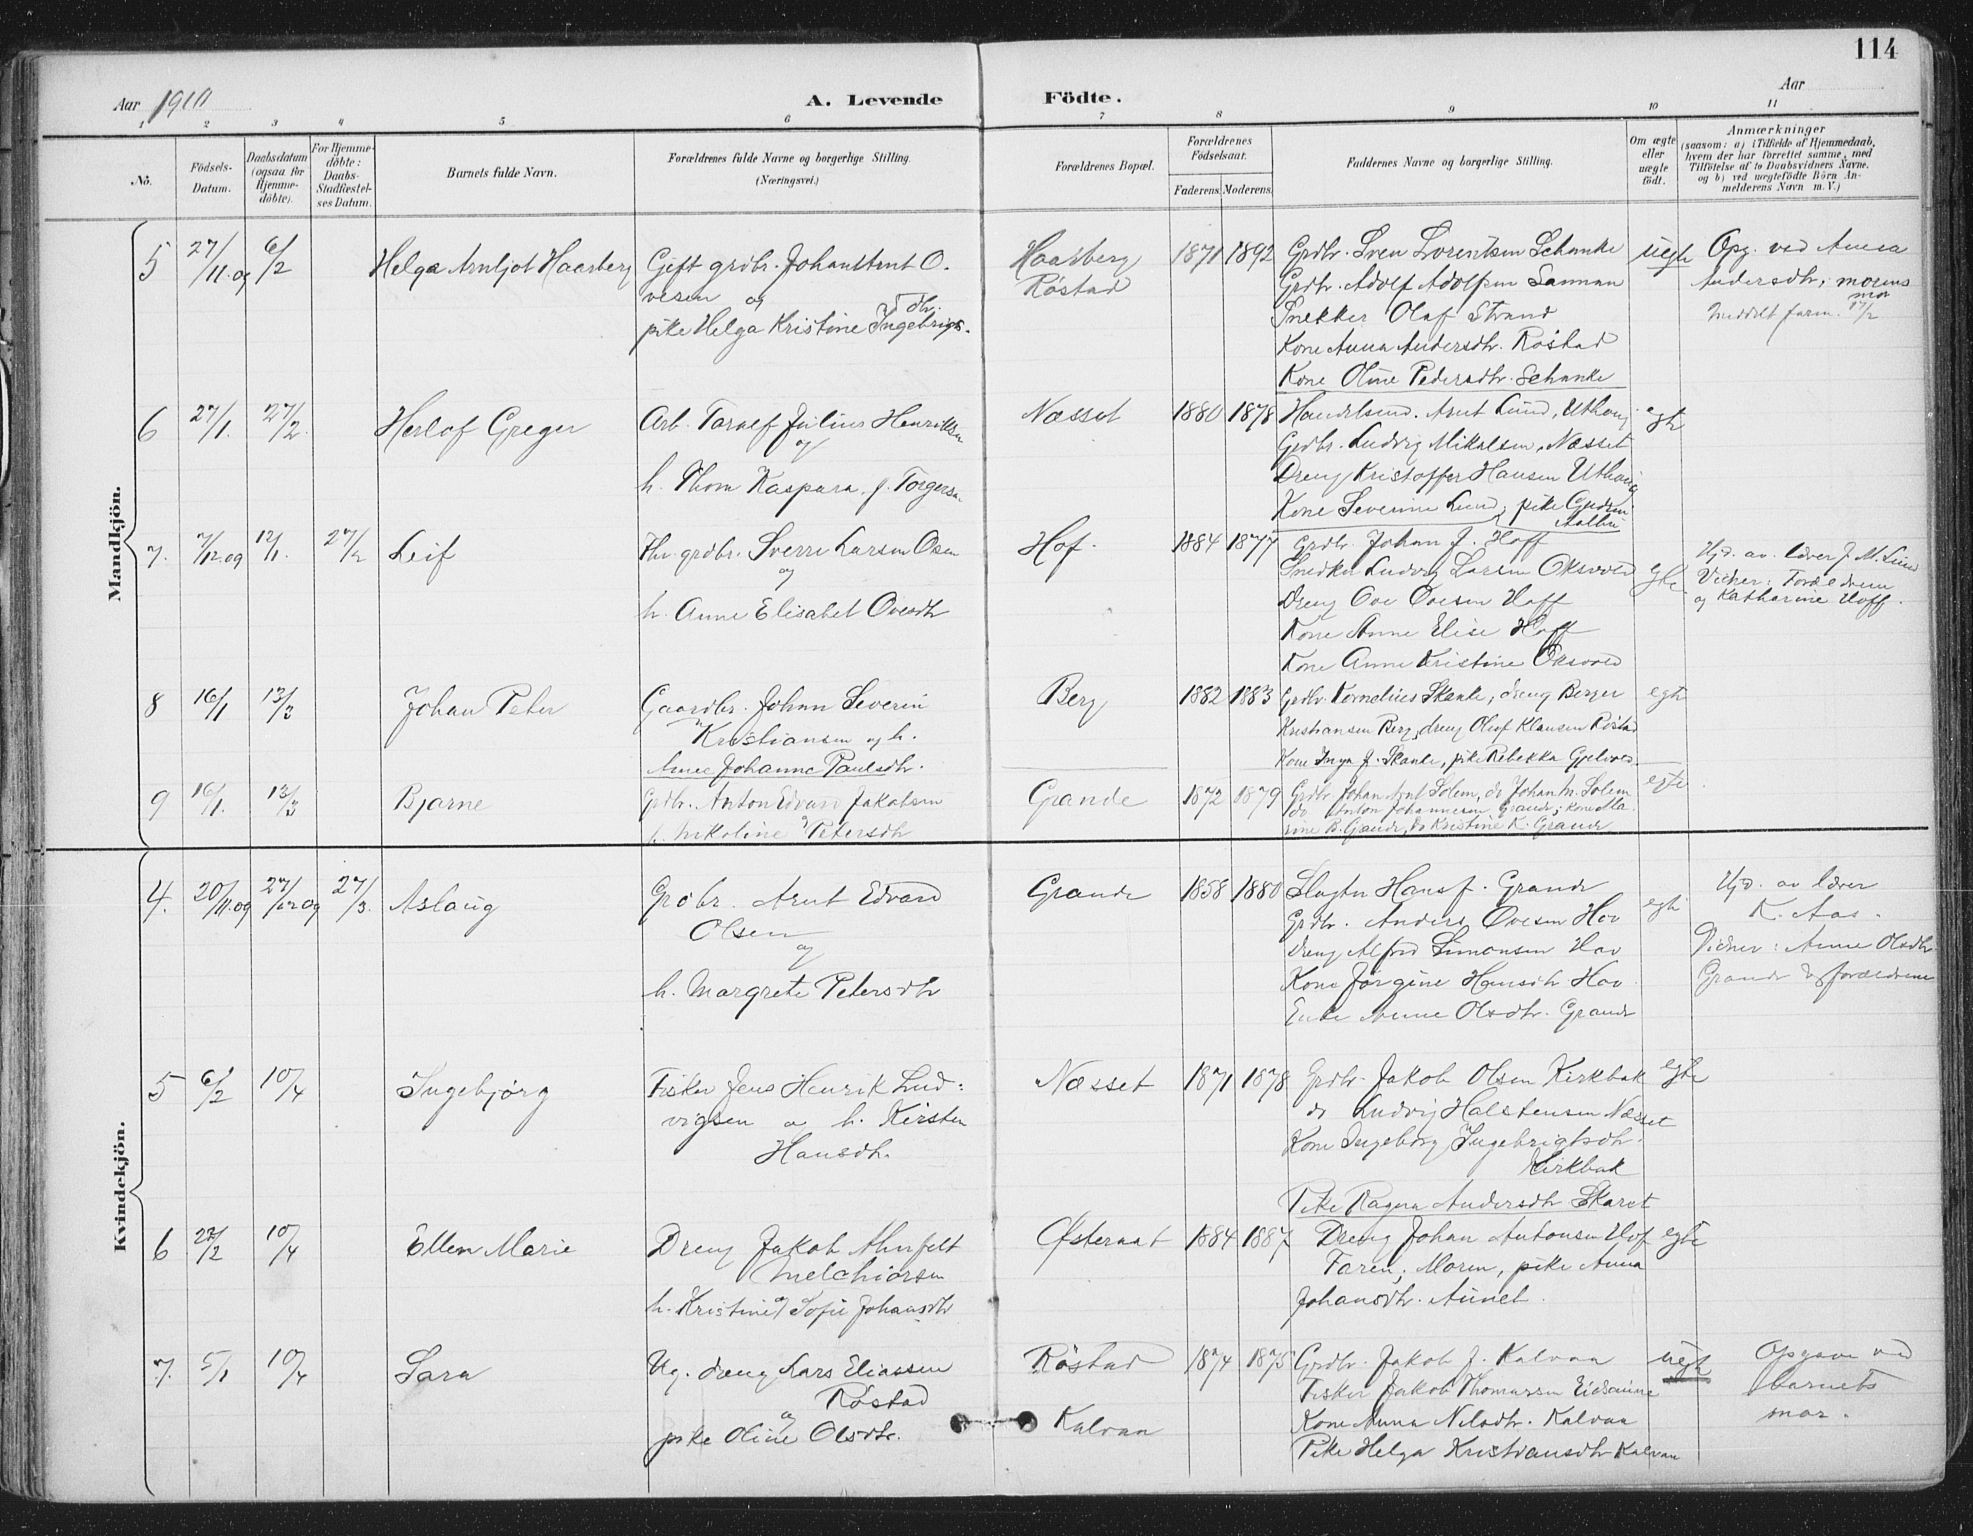 114
Aar 1910
A. Levende Födte.
Aar
1 2 3 4 5 6 7 8 9 10 11
No.
Födsels-Datum.
Daabsdatum (ogsaa for Hjemme-döbte).
For Hjemme-döbte: Daabs-Stadfæstel-ses Datum.
Barnets fulde Navn.
Forældrenes fulde Navne og borgerlige Stilling. (Næringsvei.)
Forældrenes Bopæl.
Forældrenes Födselsaar.
Faderens. Moderens.
Faddernes Navne og borgerlige Stilling.
Om ægte eller uægte födt.
Anmærkninger
(saasom: a) i Tilfælde af Hjemmedaab, hvem der har forrettet samme, med Tilföielse af to Daabsvidners Navne. og b) ved uægtefödte Börn An-melderens Navn m. V.)
Mandkjön.
5 27/11.09 6/2
Helge Arnljot Haarberg
Gift grdbr. Johan O.
vesen og
pike Helga Kristine Ingebrigts.
dtr.
Haarberg
Röstad
1871 1892
Grdbr. Sven Lorentsen Schanke
Grdbr. Adolf Adolfsen Sannan
Snekker Olaf Strand
Kone Anna Andersdtr. Röstad
Kone Oline Pedersdtr. Schanke
uegte
Opg. ved Anna
Andersdtr; morens
mor
meddelt farm. 17/2
6 27/1. 27/2.
Herlof Greger
Arb. Toralf Julius Henriksen
og
h. Thom Kaspara f. Torgersen
Næsset
1880 1878
Handelsmd. Arnt Lund, Uthaug
Grdbr. Ludvig Mikalsen, Næsset
Dreng Kristoffer Hansen Uthaug
Kone Severine Lund, pike Gudrun
egte
7. 7/12.09 12/1. 27/2
Leif
Grdbr. Sverre Larsen Osen
og
h. Anne Elisabet Ovesdtr
Hof.
1884 1877
Grdbr. Johan J. Hoff
Snedker Ludvig Larsen Oksvold
Dreng Ove Ovesen Hoff
Kone Anne Elise Hoff
Kone Anne Kristine Oksvold
egte
Hjd. av lærer J. M. Lund
Vidner: Forældrene
og Katharine Hoff.
8 16/1 13/3
Johan Peter
Gaardbr. Johan Severin
Kristiansen og h.
Anne Johanna Paulsdtr.
Berg
1882 1883
Grdbr. Kornelius Skanke, dreng Berger
Kristiansen Berg, dreng Oluf Klausen Röstad
Kone Inga J. Skanke, pike Rebekka
egte
9 16/1. 13/3
Bjarne
Grdbr. Anton Edvard Jakobsen
og
h. Nikoline Petersdtr
Grande
1872 1879
Grdbr. Johan Arnt Solem, do Johan M. Solem
do Anton Johannesen Grande; kone Ma-
rene B. Grande, do Kristine K. Grande
egte
Kvindekjön.
4. 20/11.09 27/12 09 27/3.
Aslaug
Grdbr. Arnt Edvard
Olsen
og
h. Margrete Petersdtr
Grande
1858 1880
Slagter Hans J. Grande
Grdbr. Anders Ovesen Hov
Dreng Alfred Simonsen Hov
Kone Jörgine Hansdtr Hov
Enke Anne Olsdtr. Grande
egte
Hjd. av lærer
K. Aas.
Vidner: Anne Olsdtr
Grande & forældrene
5 6/2 10/4
Ingebjörg
Fisker Jens Henrik Lud-
vigsen o h. Kirsten
Hansdtr.
Næsset
1871 1878
Grdbr. Jakob Olsen Kirkbak
do Ludvig Halstensen Næsset
Kone Ingeborg Ingebrigtsdtr.
Kirkbak
Pike Ragna Andersdtr Skaret
egte
6 22/2 10/4
Ellen Marie
Dreng Jakob Ahnfelt
Melchiorsen
og
h. Kristine Sofie Johansdtr
Østeraat
1884 1887
Dreng Johan Antonsen Hof
Faren, Moren, pike Anna
Johansdtr. Aunet.
egte
7. 5/1 10/4
Sara
Ug. dreng Lars Eliassen
Röstad
og
pike Oline Olsdtr.
Röstad
Kalvaa
1874 1875
Grdbr. Jakob J. Kalvaa
Fisker Jakob Thomassen
Kone Anna Nilsdtr. Kalvaa
Pike Helga Kristiansdtr Kalvaa
uegte
Opgave ved
barnets
mor.